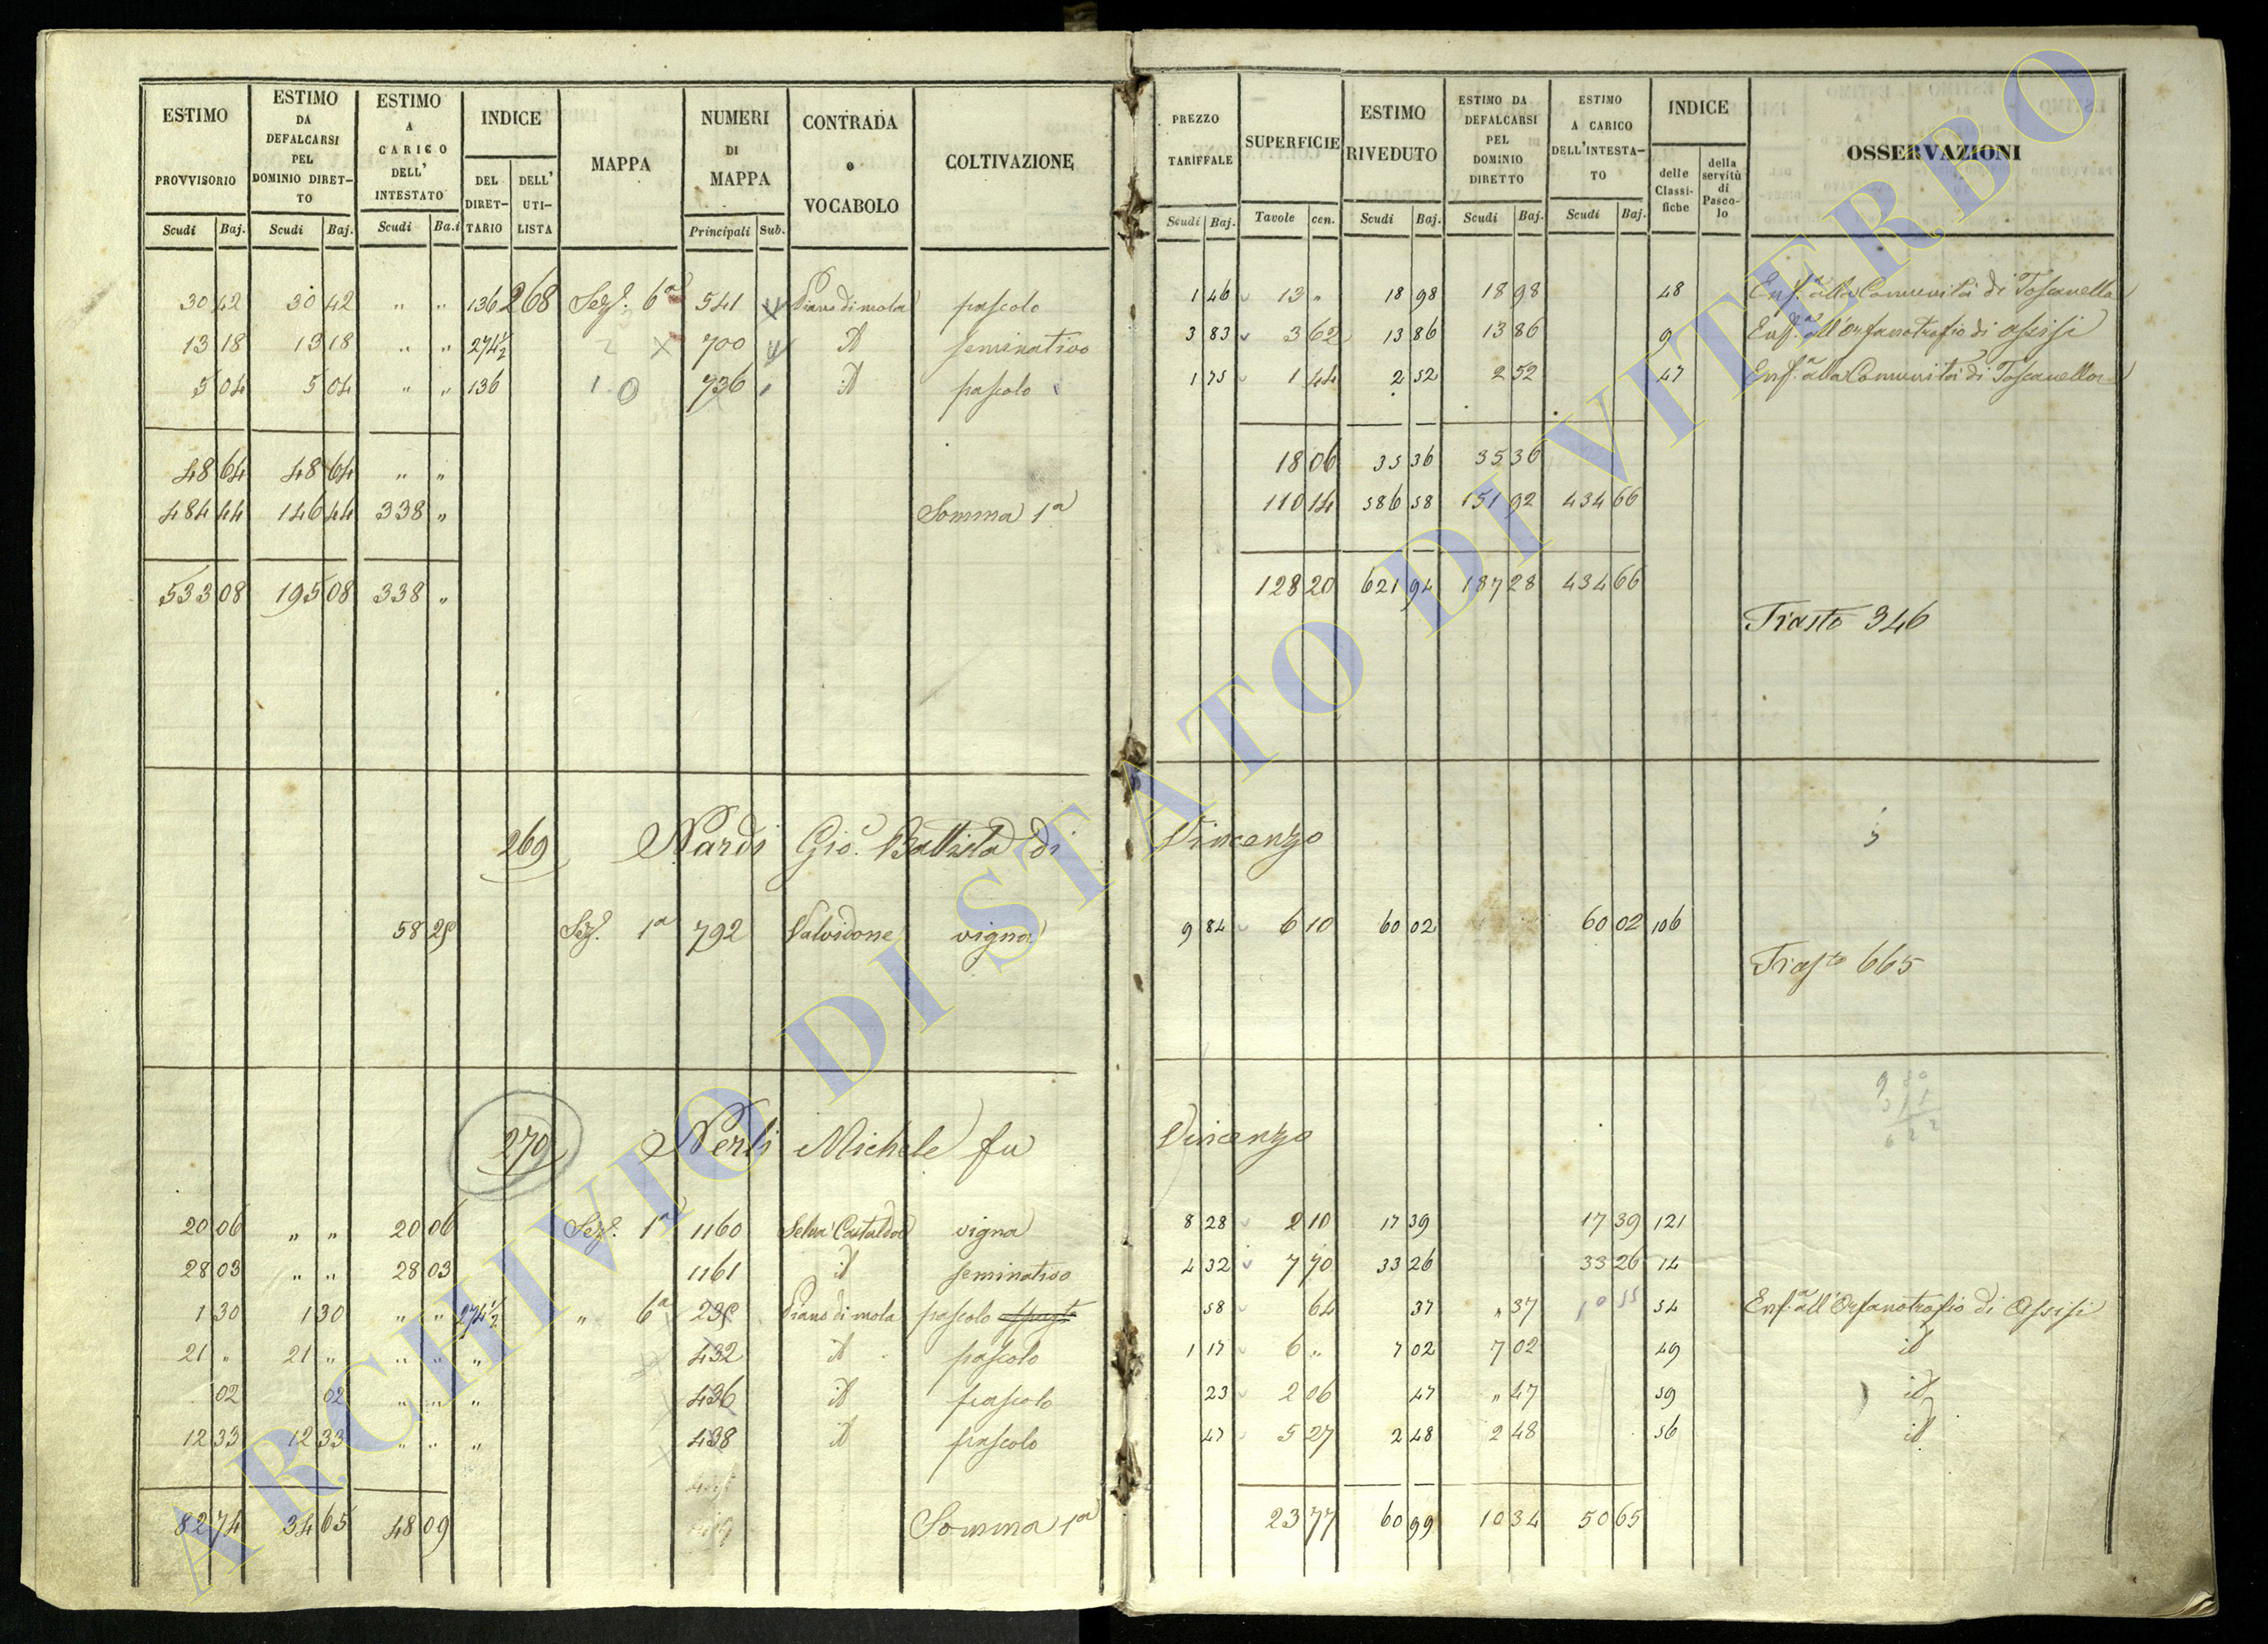 ESTIMO PROVVISORIO Scudi Baj.
ESTIMO DA DEFALCARSI PEL DOMINIO DIRET-TO Scudi Baj.
ESTIMO A CARICO DELL' INTESTATO Scudi Ba.i
INDICE DEL DIRET-TARIO DELL' UTI-LISTA
MAPPA
NUMERI DI MAPPA Principali Sub.
CONTRADA o VOCABOLO
COLTIVAZIONE
PREZZO TARIFFALE Scudi Baj.
SUPERFICIE Tavole cen.
ESTIMO RIVEDUTO Scudi Baj.
ESTIMO DA DEFALCARSI PEL DOMINIO DIRETTO Scudi Baj.
ESTIMO A CARICO DELL'INTESTA-TO Scudi Baj.
INDICE delle Classi-fiche della servitù di Pasco-lo
OSSERVAZIONI
30 42 30 42 " " 136 268 Sez.e 6a 541 Piano di mola pascolo 1 46 13 " 18 98 18 98 48 Enf.a alla Comunità di Toscanella
13 18 13 18 " " 274½ 700 id seminativo 3 83 3 62 13 86 13 86 9 Enf.a all'Orfanotrofio di Assisi
5 04 5 04 " " 136 736 id pascolo 1 75 1 44 2 52 2 52 47 Enf.a alla Comunità di Toscanella
48 64 48 64 " " 18 06 35 36 35 36
484 44 146 44 338 " Somma 1a 110 14 586 58 151 92 434 66
533 08 195 08 338 " 128 20 621 94 187 28 434 66
Trasto 346
269 Nardi Gio. Battista di Vincenzo
58 29 Sez.e 1a 792 Valvidone vigna 9 84 6 10 60 02 60 02 106
Trasto 665
270 Nerli Michele fu Vincenzo
20 06 " " 20 06 Sez.e 1a 1160 Selva Castaldo vigna 8 28 2 10 17 39 17 39 121
28 03 " " 28 03 1161 id seminativo 4 32 7 70 33 26 33 26 14
1 30 1 30 " " 274½ " 6a 239 Piano di mola pascolo 58 64 37 " 37 54 Enf.a all'Orfanotrofio di Assisi
21 " 21 " " " " 432 id pascolo 1 17 6 " 7 02 7 02 49 id
02 02 " " " 436 id pascolo 23 2 06 47 " 47 59 id
12 33 12 33 " " " 438 id pascolo 47 5 27 2 48 2 48 56 id
82 74 34 65 48 09 Somma 1a 23 77 60 99 10 34 50 65
ARCHIVIO DI STATO DI VITERBO